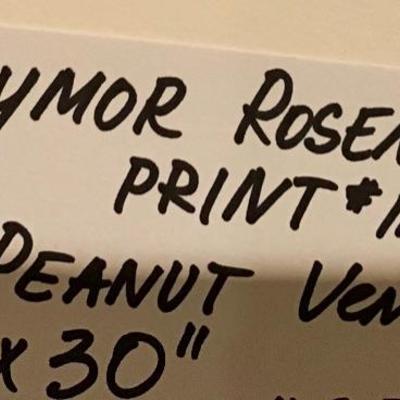 YMOR ROSEN
PRINT #1
PEANUT VEN
x 30"